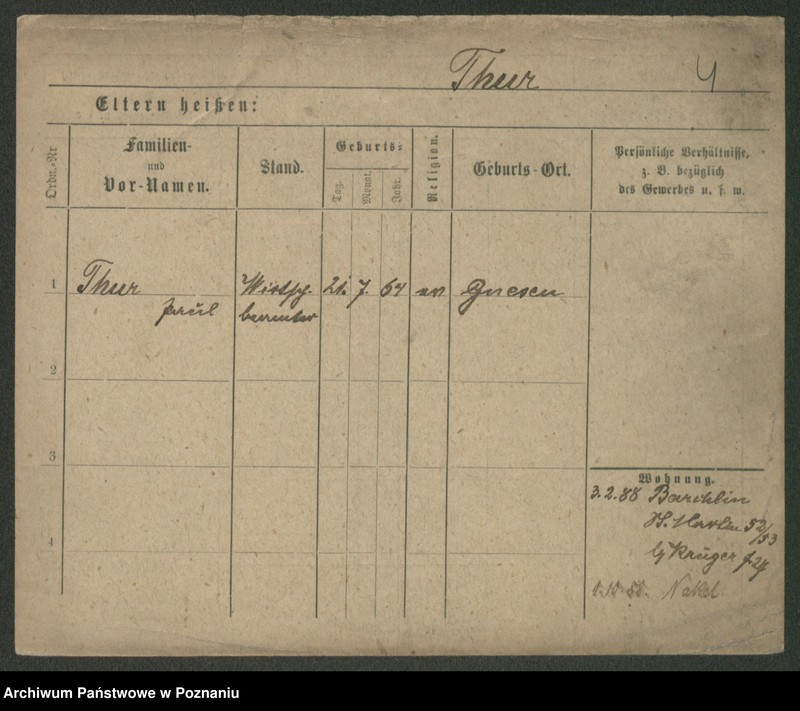 Thur 4
Eltern heißen:
Ordn.-Nr
Familien-
und
Vor-Namen.
Stand.
Geburts-
Tag.
Monat.
Jahr.
Religion.
Geburts-Ort.
Persönliche Verhältnisse,
z. B. bezüglich
des Gewerbes u. s. w.
1 Thur Wirtsch. 21. 7. 64 ev Gnesen
Paul beamter
2
3
Wohnung.
3.2.88
St. Martin 52/53
Krüger
4
Nakel
Archiwum Państwowe w Poznaniu